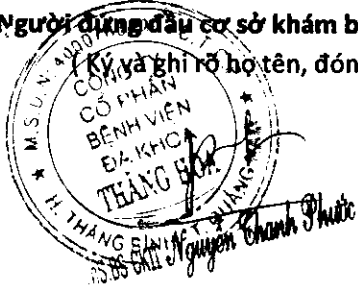 Người đứng đầu cơ sở khám b
(Ký và ghi rõ họ tên, đón
M.S.D.N: 4000
CÔNG TY
CỔ PHẦN
BỆNH VIỆN
ĐA KHOA
THĂNG HOA
H. THĂNG BÌNH - T. QUẢNG NAM
BS CKII Nguyễn Thanh Phước